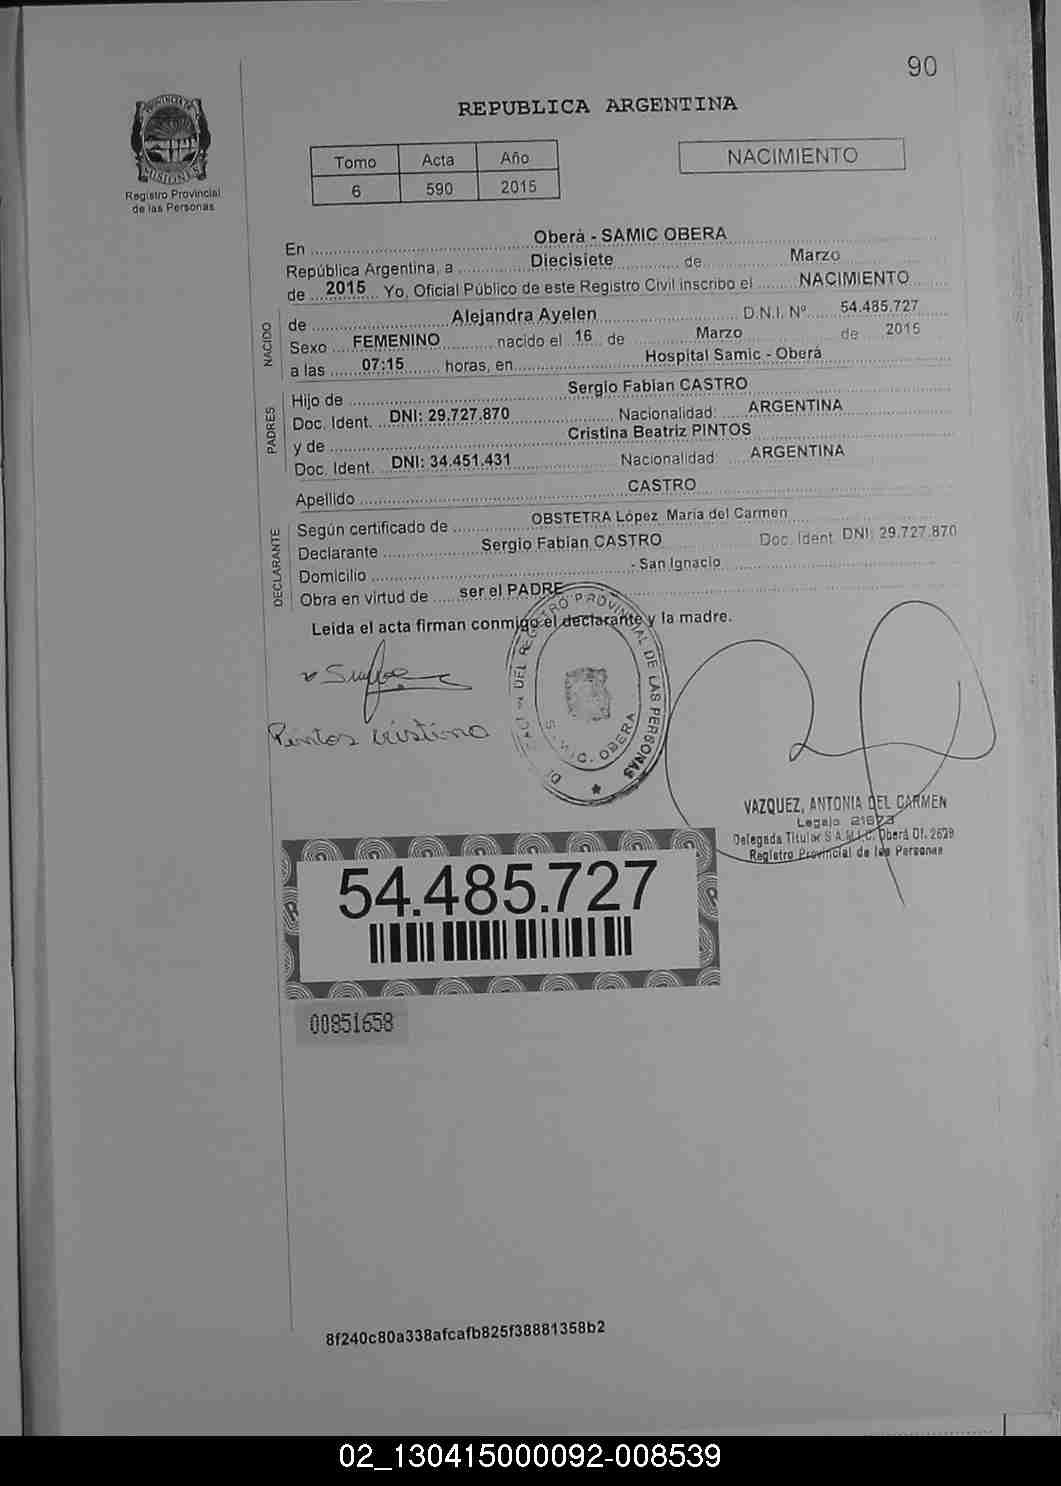 90
PROVINCIA DE
MISIONES
Registro Provincial
de las Personas
REPUBLICA ARGENTINA
Tomo Acta Año
6 590 2015
NACIMIENTO
En Oberá - SAMIC OBERA
República Argentina, a Diecisiete de Marzo
de 2015 Yo, Oficial Público de este Registro Civil inscribo el NACIMIENTO
NACIDO
de Alejandra Ayelen D.N.I. Nº 54.485.727
Sexo FEMENINO nacido el 16 de Marzo de 2015
a las 07:15 horas, en Hospital Samic - Oberá
PADRES
Hijo de Sergio Fabian CASTRO
Doc. Ident. DNI: 29.727.870 Nacionalidad: ARGENTINA
y de Cristina Beatriz PINTOS
Doc. Ident. DNI: 34.451.431 Nacionalidad ARGENTINA
Apellido CASTRO
DECLARANTE
Según certificado de OBSTETRA López María del Carmen
Declarante Sergio Fabian CASTRO Doc. Ident. DNI: 29.727.870
Domicilio - San Ignacio
Obra en virtud de ser el PADRE
Leida el acta firman conmigo el declarante y la madre.
DEL REGISTRO PROVINCIAL DE LAS PERSONAS
OBERA
Pintos Cristina
VAZQUEZ, ANTONIA DEL CARMEN
Legajo
Delegada Titular S.A.M.I.C. Oberá Of. 2629
Registro Provincial de las Personas
54.485.727
00851658
8f240c80a338afcafb825f38881358b2
02_130415000092-008539